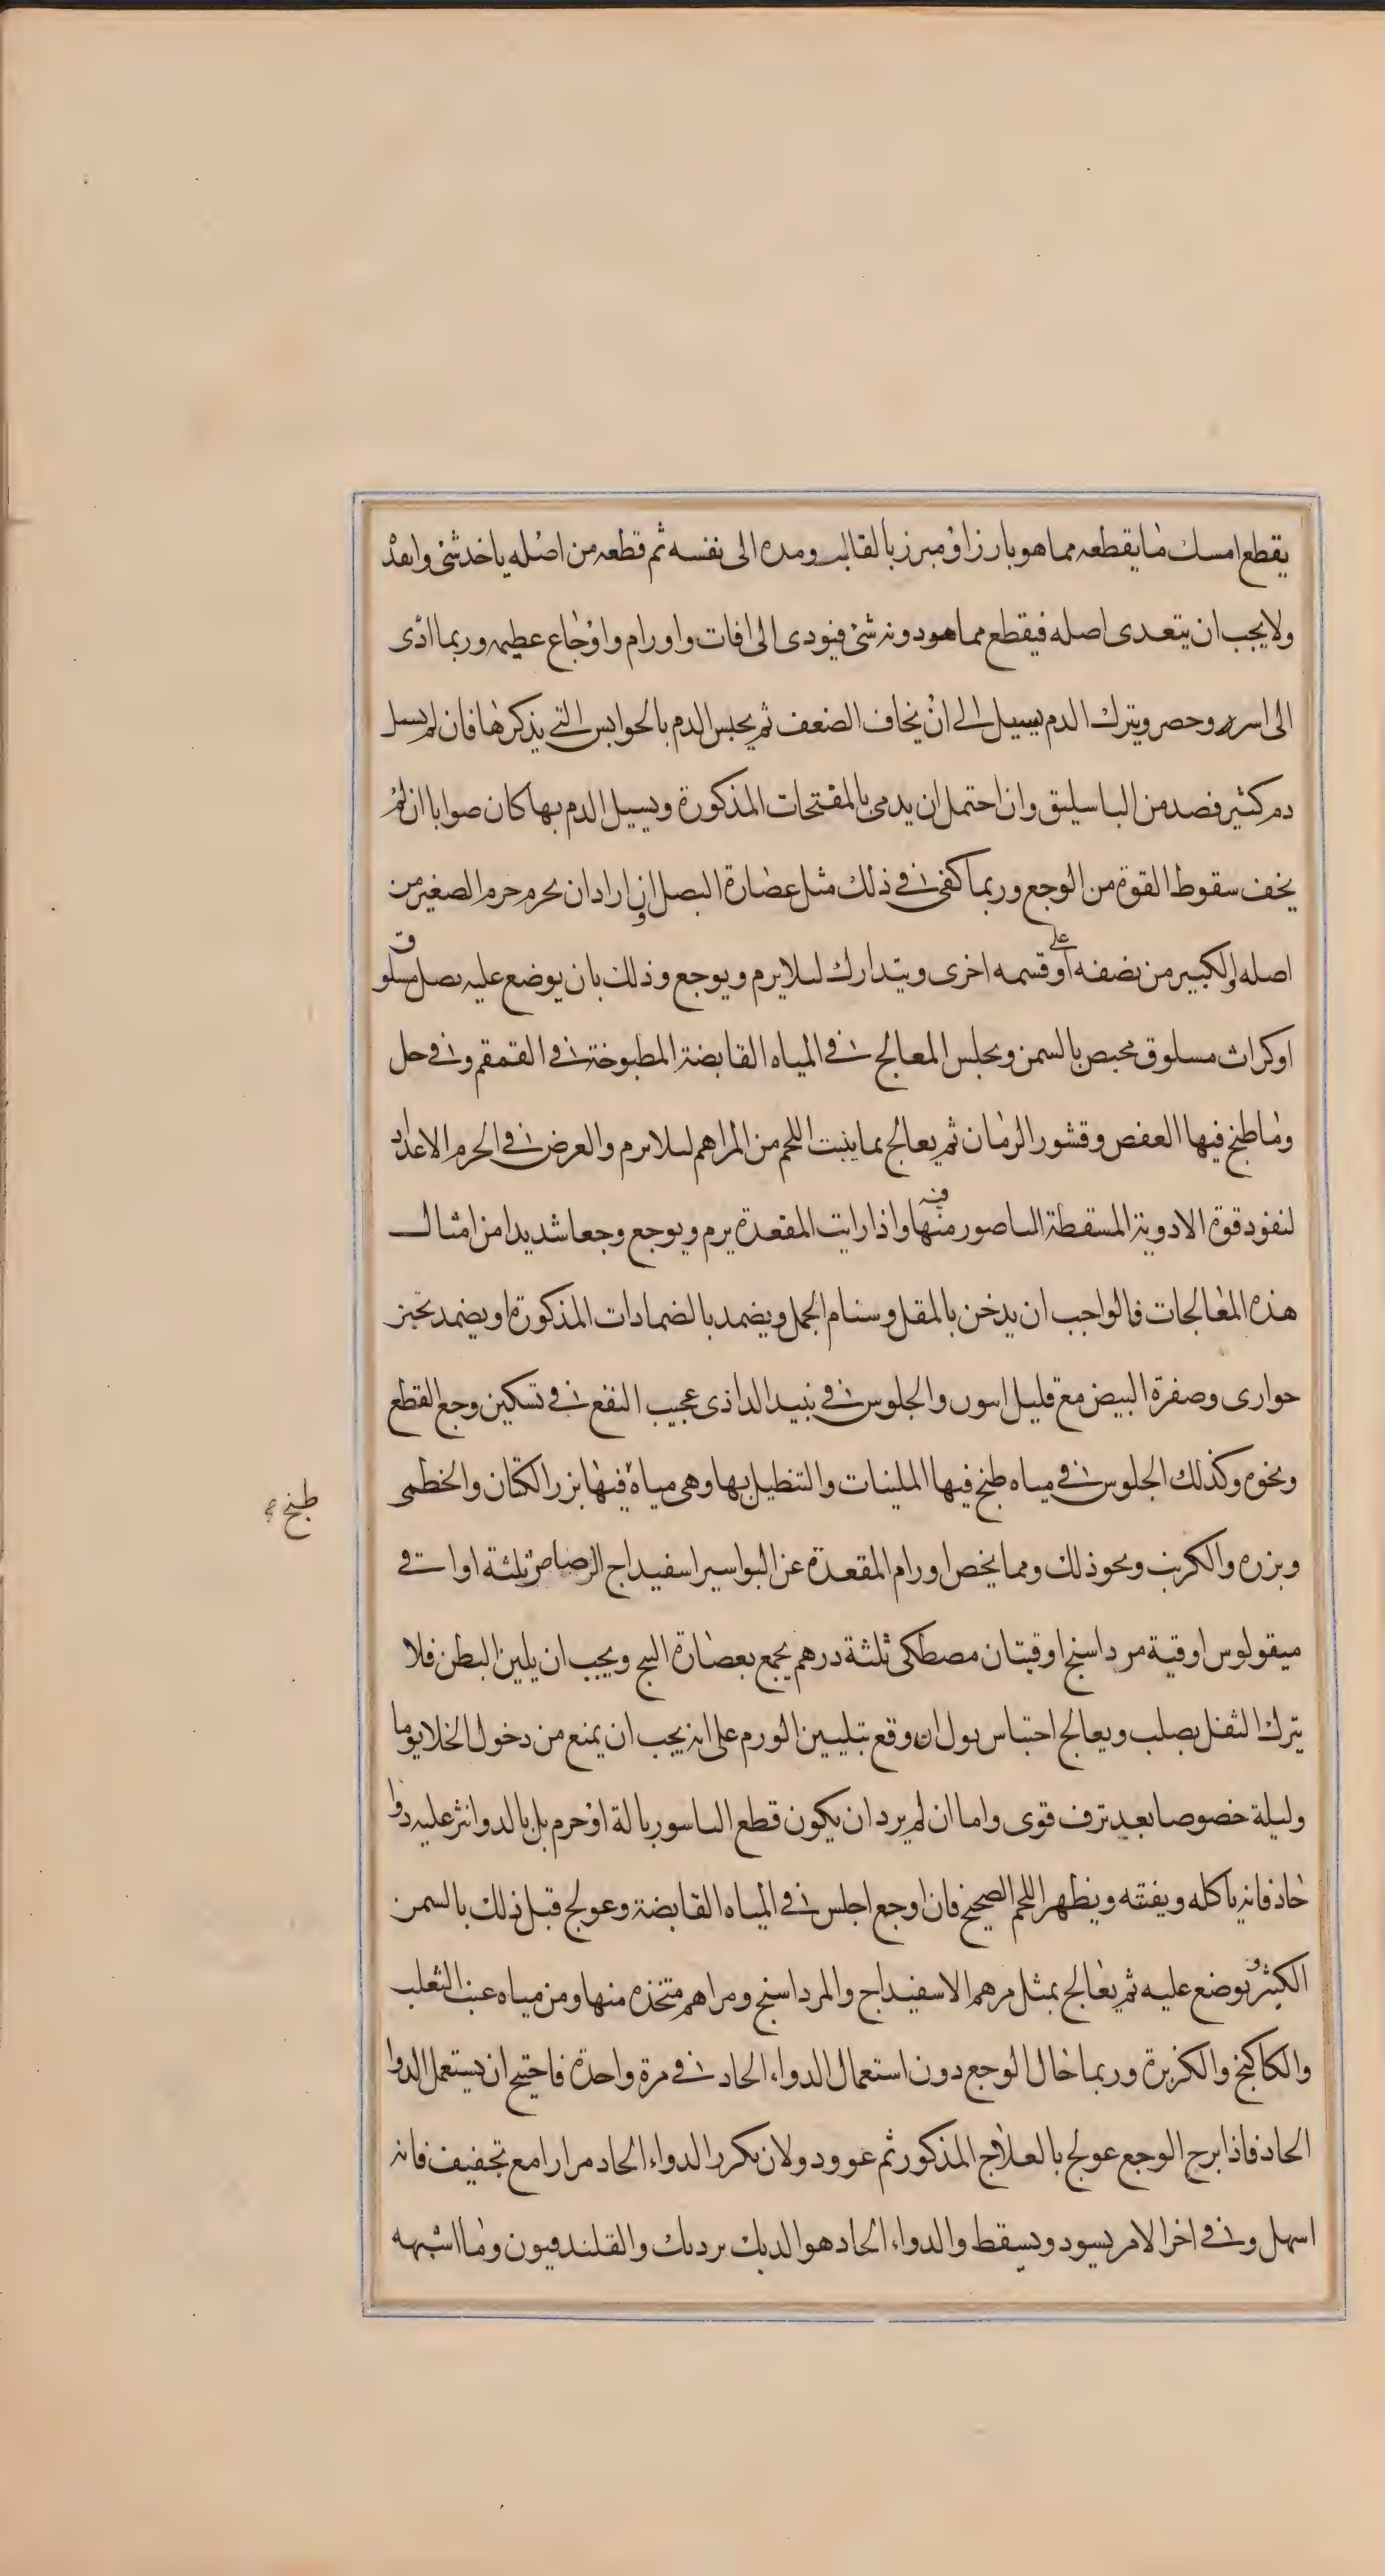 يقطع امسك ما يقطعه مما هو بارز او مبرز بالقالب ومده الى نفسه ثم قطعه من اصله ياخد شئ وابعد
ولا يجب ان يتعدى اصله فيقطع مما هو دونه شئ فيودى الى افات واورام واوجاع عظيمه وربما ادى
الى اسر وحصر ويترك الدم يسيل الى ان يخاف الضعف ثم يحبس الدم بالحوابس التي يذكرها فان لم يسل
دم كثير فصد من الباسليق وان احتمل ان يدمى بالمفتحات المذكورة ويسيل الدم بها كان صوابا ان لم
يخف سقوط القوة من الوجع وربما كفى في ذلك مثل عصارة البصل وان اراد ان يحرم حرم الصغير من
اصله والكبير من نصفه او على قسمه اخرى ويتدارك لىلا يرم ويوجع وذلك بان يوضع عليه بصل مسلوق
او كراث مسلوق محبص بالسمن ويجلس المعالج في المياه القابضة المطبوخة في القمقم وفي خل
وما طبخ فيها العفص وقشور الرمان ثم يعالج بما ينبت اللحم من المراهم لىلا يرم والغرض في الحرم الاعداد
لنفود قوة الادوية المسقطة الباصور منها فيه واذا رايت المقعدة يرم ويوجع وجعا شديدا من امثال
هذه المعالجات فالواجب ان يدخن بالمقل وسنام الجمل ويضمد بالضمادات المذكورة او يضمد بخبز
حوارى وصفرة البيض مع قليل اسون والجلوس في نبيد الداذى عجيب النفع في تسكين وجع القطع
ونحوه وكذلك الجلوس في مياه طبخ فيها الملينات والتنطيل بها وهى مياه فيها بزر الكتان والخطمى
طبخ
وبزره والكرنب ونحو ذلك ومما يخص اورام المقعدة عن البواسير اسفيداج الرصاص ثلثة اواقى
ميقولوس اوقية مرداسنج اوقيتان مصطكى ثلثة درهم يجمع بعصارة البنج ويجب ان يلين البطن فلا
يترك الثفل يصلب ويعالج احتباس بول ان وقع بتليين الورم على انه يجب ان يمنع من دخول الخلا يوما
وليلة خصوصا بعد نزف قوى واما ان لم يرد ان يكون قطع الباسور بالة او حرم بل بالدوا نثر عليه دوا
حاد فانه ياكله ويفنته ويظهر اللحم الصحيح فان اوجع اجلس في المياه القابضة وعولج قبل ذلك بالسمن
الكثير ويوضع عليه ثم يعالج بمثل مرهم الاسفيداج والمرداسنج ومراهم متخذه منها ومن مياه عنب الثعلب
والكاكنج والكزبرة وربما حال الوجع دون استعمال الدواء الحاد في مرة واحدة فاحتيج ان يستعمل الدوا
الحاد فاذا برح الوجع عولج بالعلاج المذكور ثم عوود ولان يكرر الدواء الحاد مرارا مع تجفيف فانه
اسهل وفي اخر الامر يسود ويسقط والدواء الحاد هو الديك برديك والقلندفيون وما اشبهه